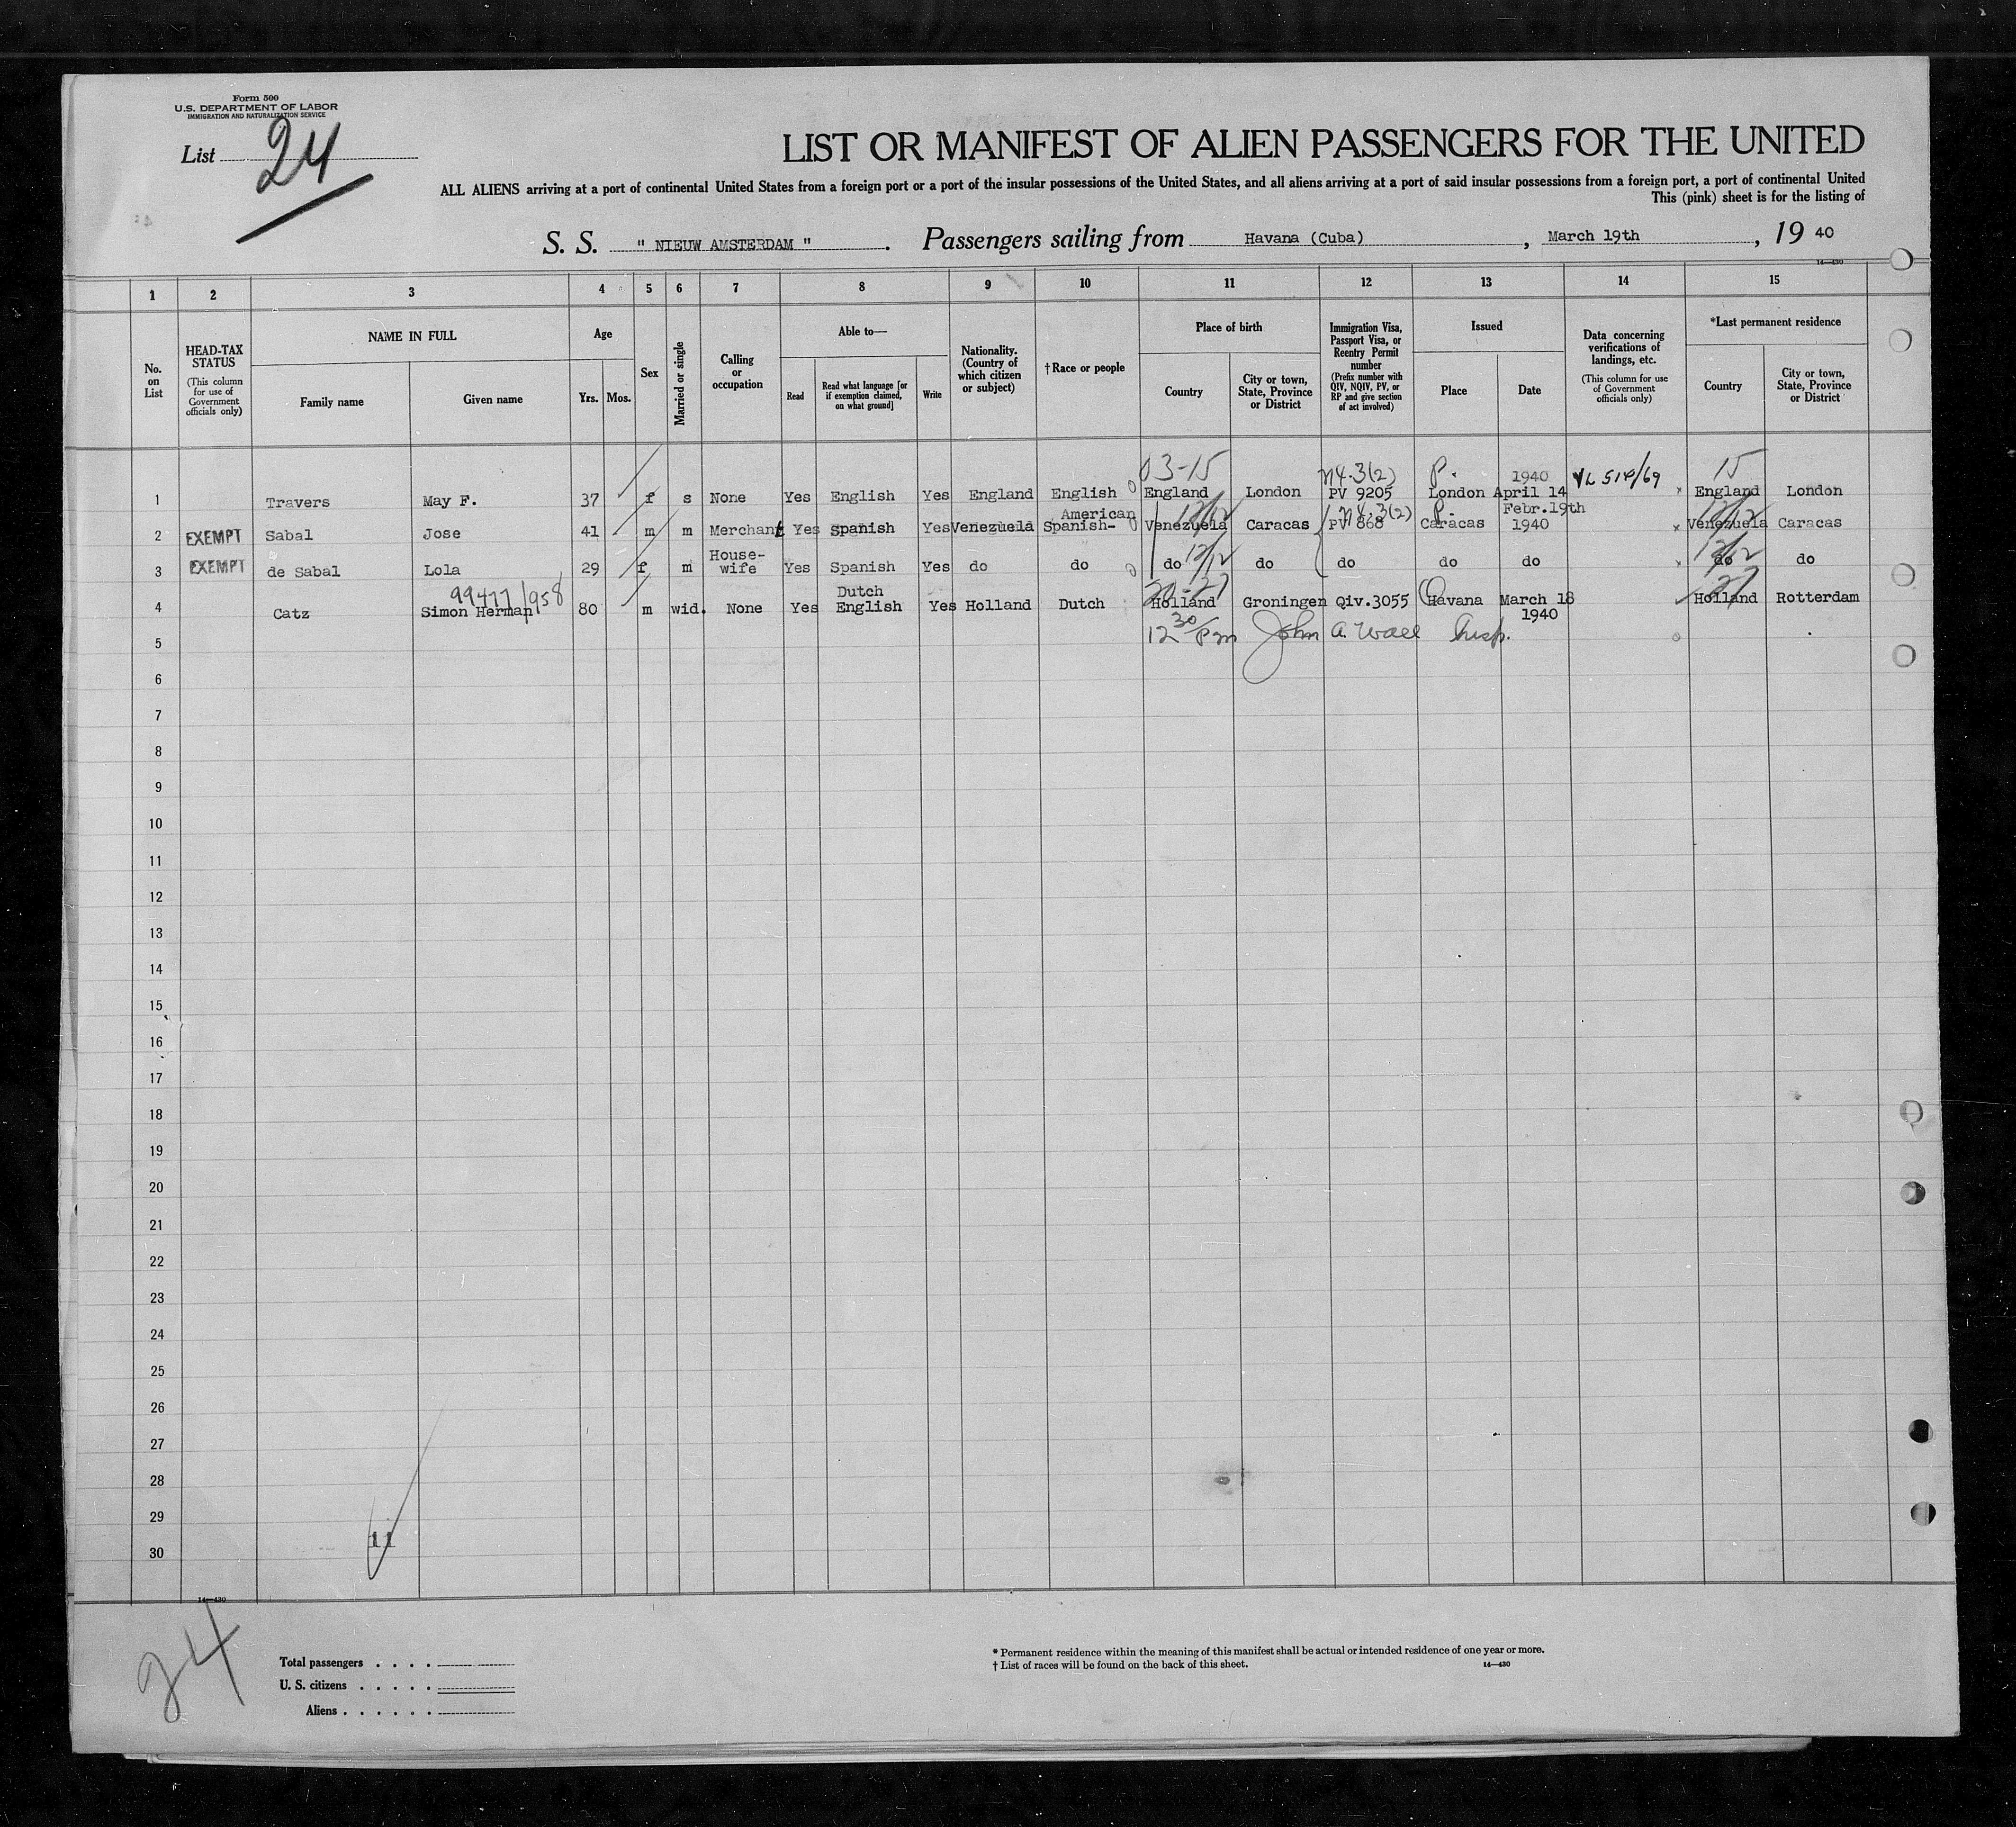 Form 500
U.S. DEPARTMENT OF LABOR
IMMIGRATION AND NATURALIZATION SERVICE
List 24
LIST OR MANIFEST OF ALIEN PASSENGERS FOR THE UNITED
ALL ALIENS arriving at a port of continental United States from a foreign port or a port of the insular possessions of the United States, and all aliens arriving at a port of said insular possessions from a foreign port, a port of continental United
This (pink) sheet is for the listing of
S. S. " NIEUW AMSTERDAM " . Passengers sailing from Havana (Cuba) , March 19th , 19 40
14—430
1 2 3 4 5 6 7 8 9 10 11 12 13 14 15
No. on List
HEAD-TAX STATUS (This column for use of Government officials only)
NAME IN FULL
Family name
Given name
Age
Yrs. Mos.
Sex
Married or single
Calling or occupation
Able to—
Read
Read what language [or if exemption claimed, on what ground]
Write
Nationality. (Country of which citizen or subject)
† Race or people
Place of birth
Country
City or town, State, Province or District
Immigration Visa, Passport Visa, or Reentry Permit number (Prefix number with QIV, NQIV, PV, or RP and give section of act involved)
Issued
Place
Date
Data concerning verifications of landings, etc. (This column for use of Government officials only)
*Last permanent residence
Country
City or town, State, Province or District
03-15 N4.3(2) P. 1940 VL 514/69 15
1 Travers May F. 37 f s None Yes English Yes England English England London PV 9205 London April 14 England London
American 12/12 N4.3(2) P. Febr.19th 12/12
2 EXEMPT Sabal Jose 41 m m Merchant Yes Spanish Yes Venezuela Spanish- Venezuela Caracas PV 868 Caracas 1940 Venezuela Caracas
House- 12/12 12/12
3 EXEMPT de Sabal Lola 29 f m wife Yes Spanish Yes do do do do do do do do do
99477/958 Dutch 20-27 27
4 Catz Simon Herman 80 m wid. None Yes English Yes Holland Dutch Holland Groningen Qiv.3055 Havana March 18 Holland Rotterdam
1940
5 12 30/Pm John A. Wall Insp.
6
7
8
9
10
11
12
13
14
15
16
17
18
19
20
21
22
23
24
25
26
27
28
29
11
30
14—430
24
Total passengers . . . .
U. S. citizens . . . . .
Aliens . . . . . .
* Permanent residence within the meaning of this manifest shall be actual or intended residence of one year or more.
† List of races will be found on the back of this sheet.
14—430